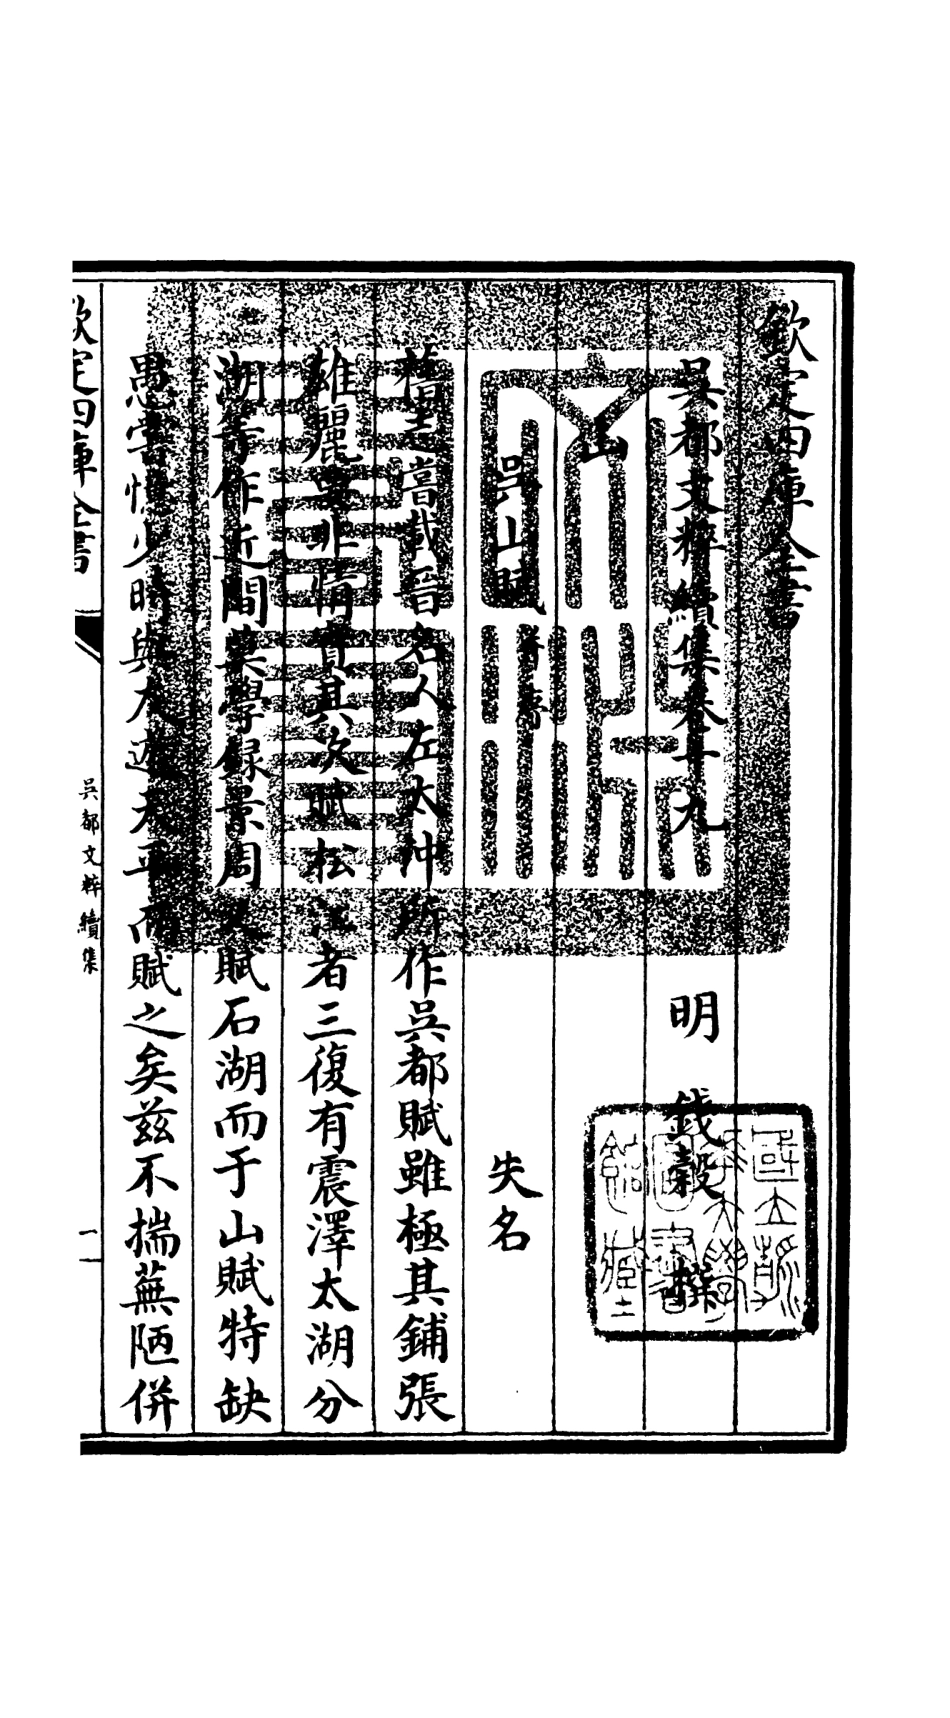 欽定四庫全書
吳都文粹續集卷十九
明 錢榖 撰
山
吳山賦 并序 失名
舊志嘗載晉名人左太冲所作吳都賦雖極其鋪張
雄麗要非情實其次賦松江者三復有震澤太湖分
湖等作近間莫學録景周又賦石湖而于山賦特缺
愚嘗憶少時與人遊天平而賦之矣兹不揣蕪陋併
欽定四庫全書
吳都文粹續集
一